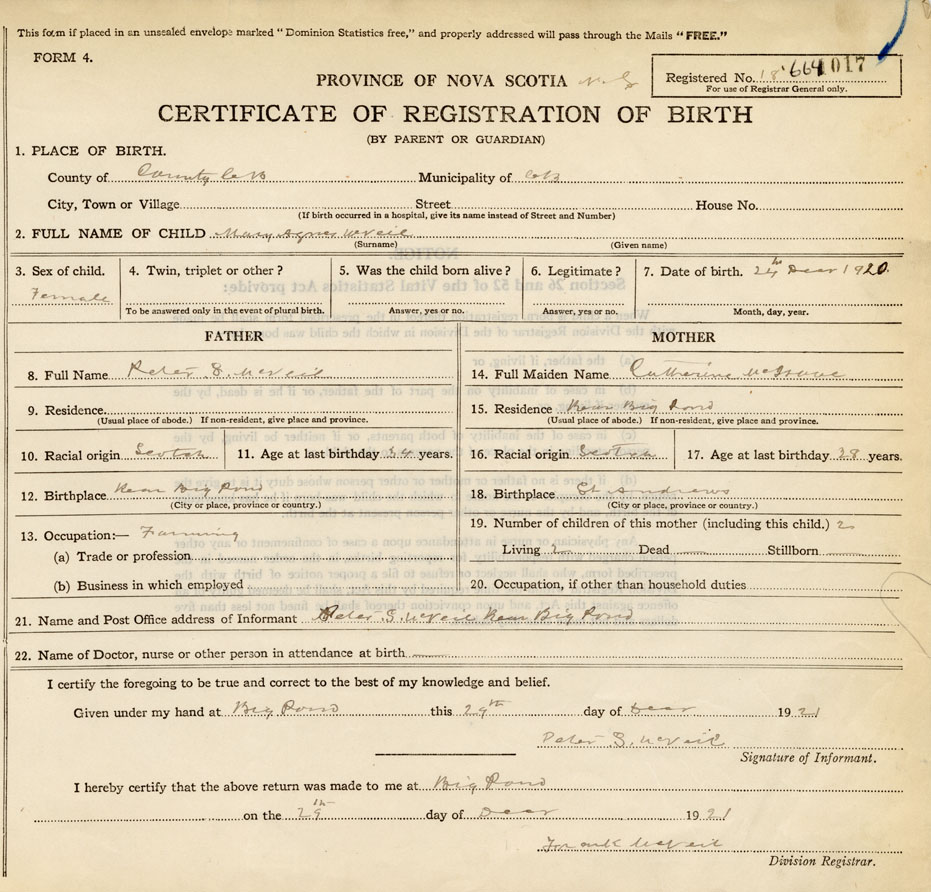 This form if placed in an unsealed envelope marked “Dominion Statistics free,” and properly addressed will pass through the Mails “FREE.”
FORM 4.
PROVINCE OF NOVA SCOTIA N.S.
Registered No. 664 017
For use of Registrar General only.
CERTIFICATE OF REGISTRATION OF BIRTH
(BY PARENT OR GUARDIAN)
1. PLACE OF BIRTH.
County of County C B Municipality of CB
City, Town or Village Street House No.
(If birth occurred in a hospital, give its name instead of Street and Number)
2. FULL NAME OF CHILD Mary Agnes McNeil
(Surname) (Given name)
3. Sex of child. 4. Twin, triplet or other? 5. Was the child born alive? 6. Legitimate? 7. Date of birth. 24th Decr 1920.
Female
To be answered only in the event of plural birth. Answer, yes or no. Answer, yes or no. Month, day, year.
FATHER
8. Full Name Peter S. McNeil
9. Residence
(Usual place of abode.) If non-resident, give place and province.
10. Racial origin Scotch 11. Age at last birthday 34 years.
12. Birthplace Rear Big Pond
(City or place, province or country.)
13. Occupation:— Farming
(a) Trade or profession
(b) Business in which employed
MOTHER
14. Full Maiden Name Catherine McIsaac
15. Residence Rear Big Pond
(Usual place of abode.) If non-resident, give place and province.
16. Racial origin Scotch 17. Age at last birthday 28 years.
18. Birthplace St Andrews
(City or place, province or country.)
19. Number of children of this mother (including this child.) 2
Living 2 Dead Stillborn
20. Occupation, if other than household duties
21. Name and Post Office address of Informant Peter S. McNeil Rear Big Pond
22. Name of Doctor, nurse or other person in attendance at birth
I certify the foregoing to be true and correct to the best of my knowledge and belief.
Given under my hand at Big Pond this 29th day of Decr 1921
Peter S. McNeil
Signature of Informant.
I hereby certify that the above return was made to me at Big Pond
on the 29th day of Decr 1921
Frank McNeil
Division Registrar.